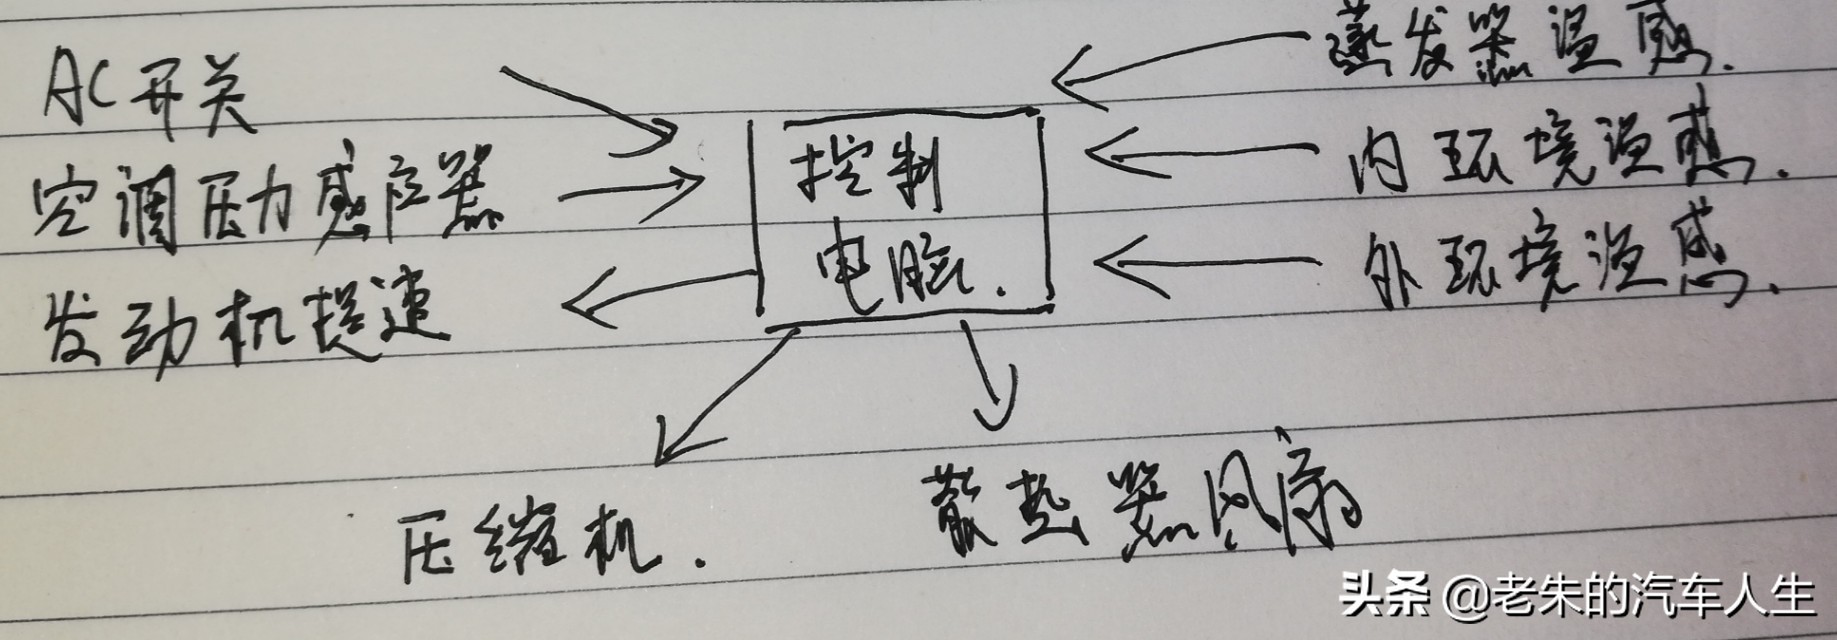 AC开关
蒸发器温感.
空调压力感应器
控制
电脑.
内环境温感.
发动机提速
外环境温感.
压缩机.
散热器风扇
头条 @老朱的汽车人生